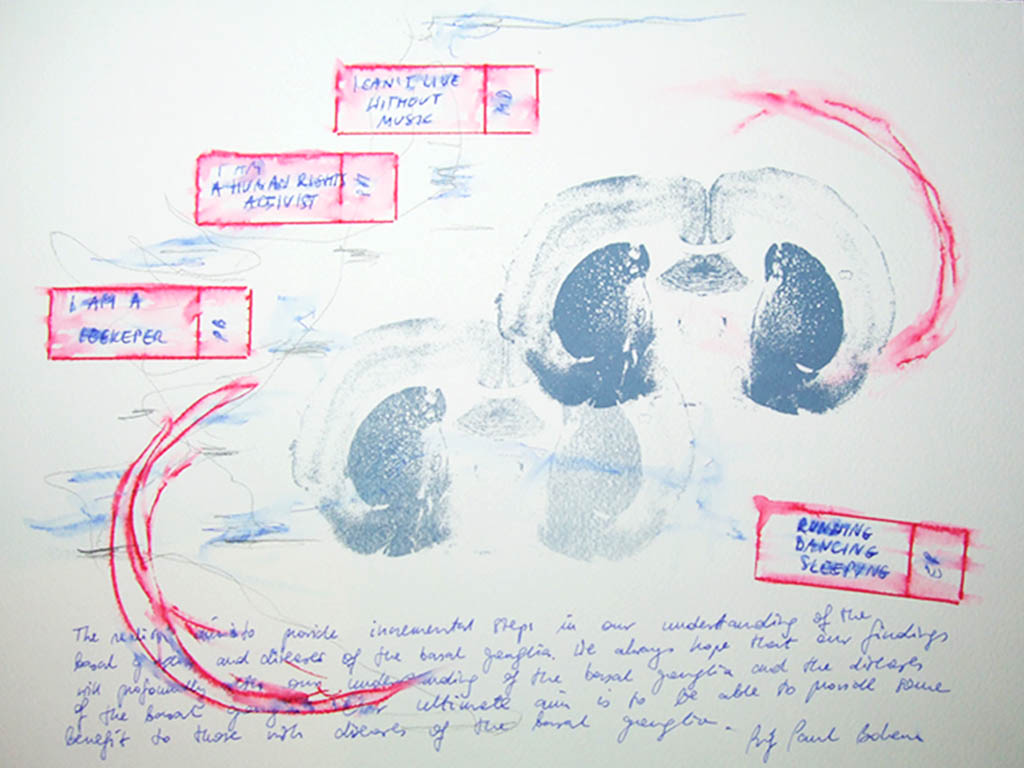 I CAN'T LIVE
WITHOUT
MUSIC
MD
I AM
A HUMAN RIGHTS
ACTIVIST
PM
I AM A
BEEKEEPER
PB
RUNNING
DANCING
SLEEPING
The to provide incremental steps in our understanding of the
basal and diseases of the basal ganglia. We always hope that our findings
will profoundly our understanding of the basal ganglia and the diseases
of the basal ultimate aim is to be able to provide some
benefit to those with diseases of the basal ganglia.
Prof Paul Bolam